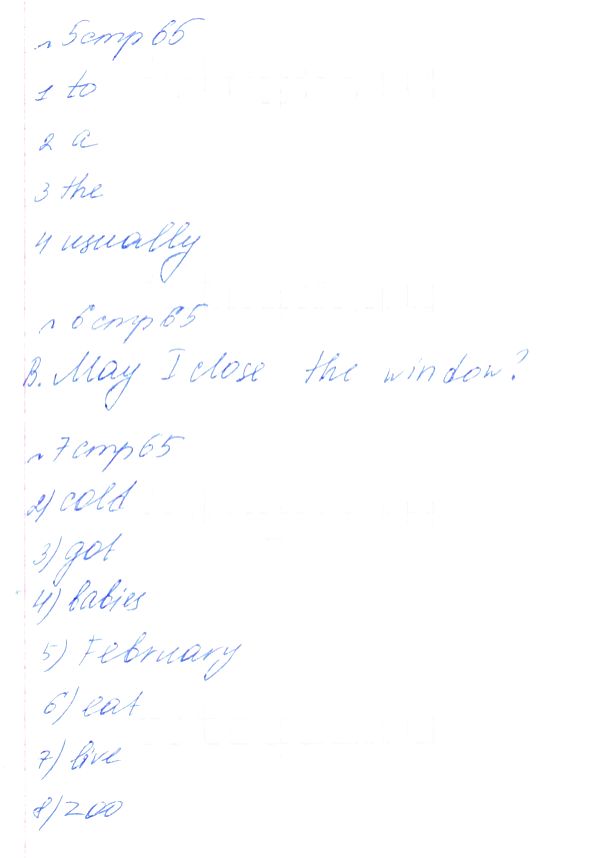 n 5 стр 65
1 to
2 a
3 the
4 usually
n 6 стр 65
B. May I close the window?
n 7 стр 65
2) cold
3) got
4) babies
5) February
6) eat
7) live
8) zoo